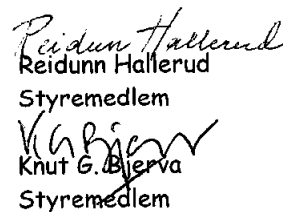 Reidun Hallerud
Reidunn Hallerud
Styremedlem
K G Bjerva
Knut G. Bjerva
Styremedlem